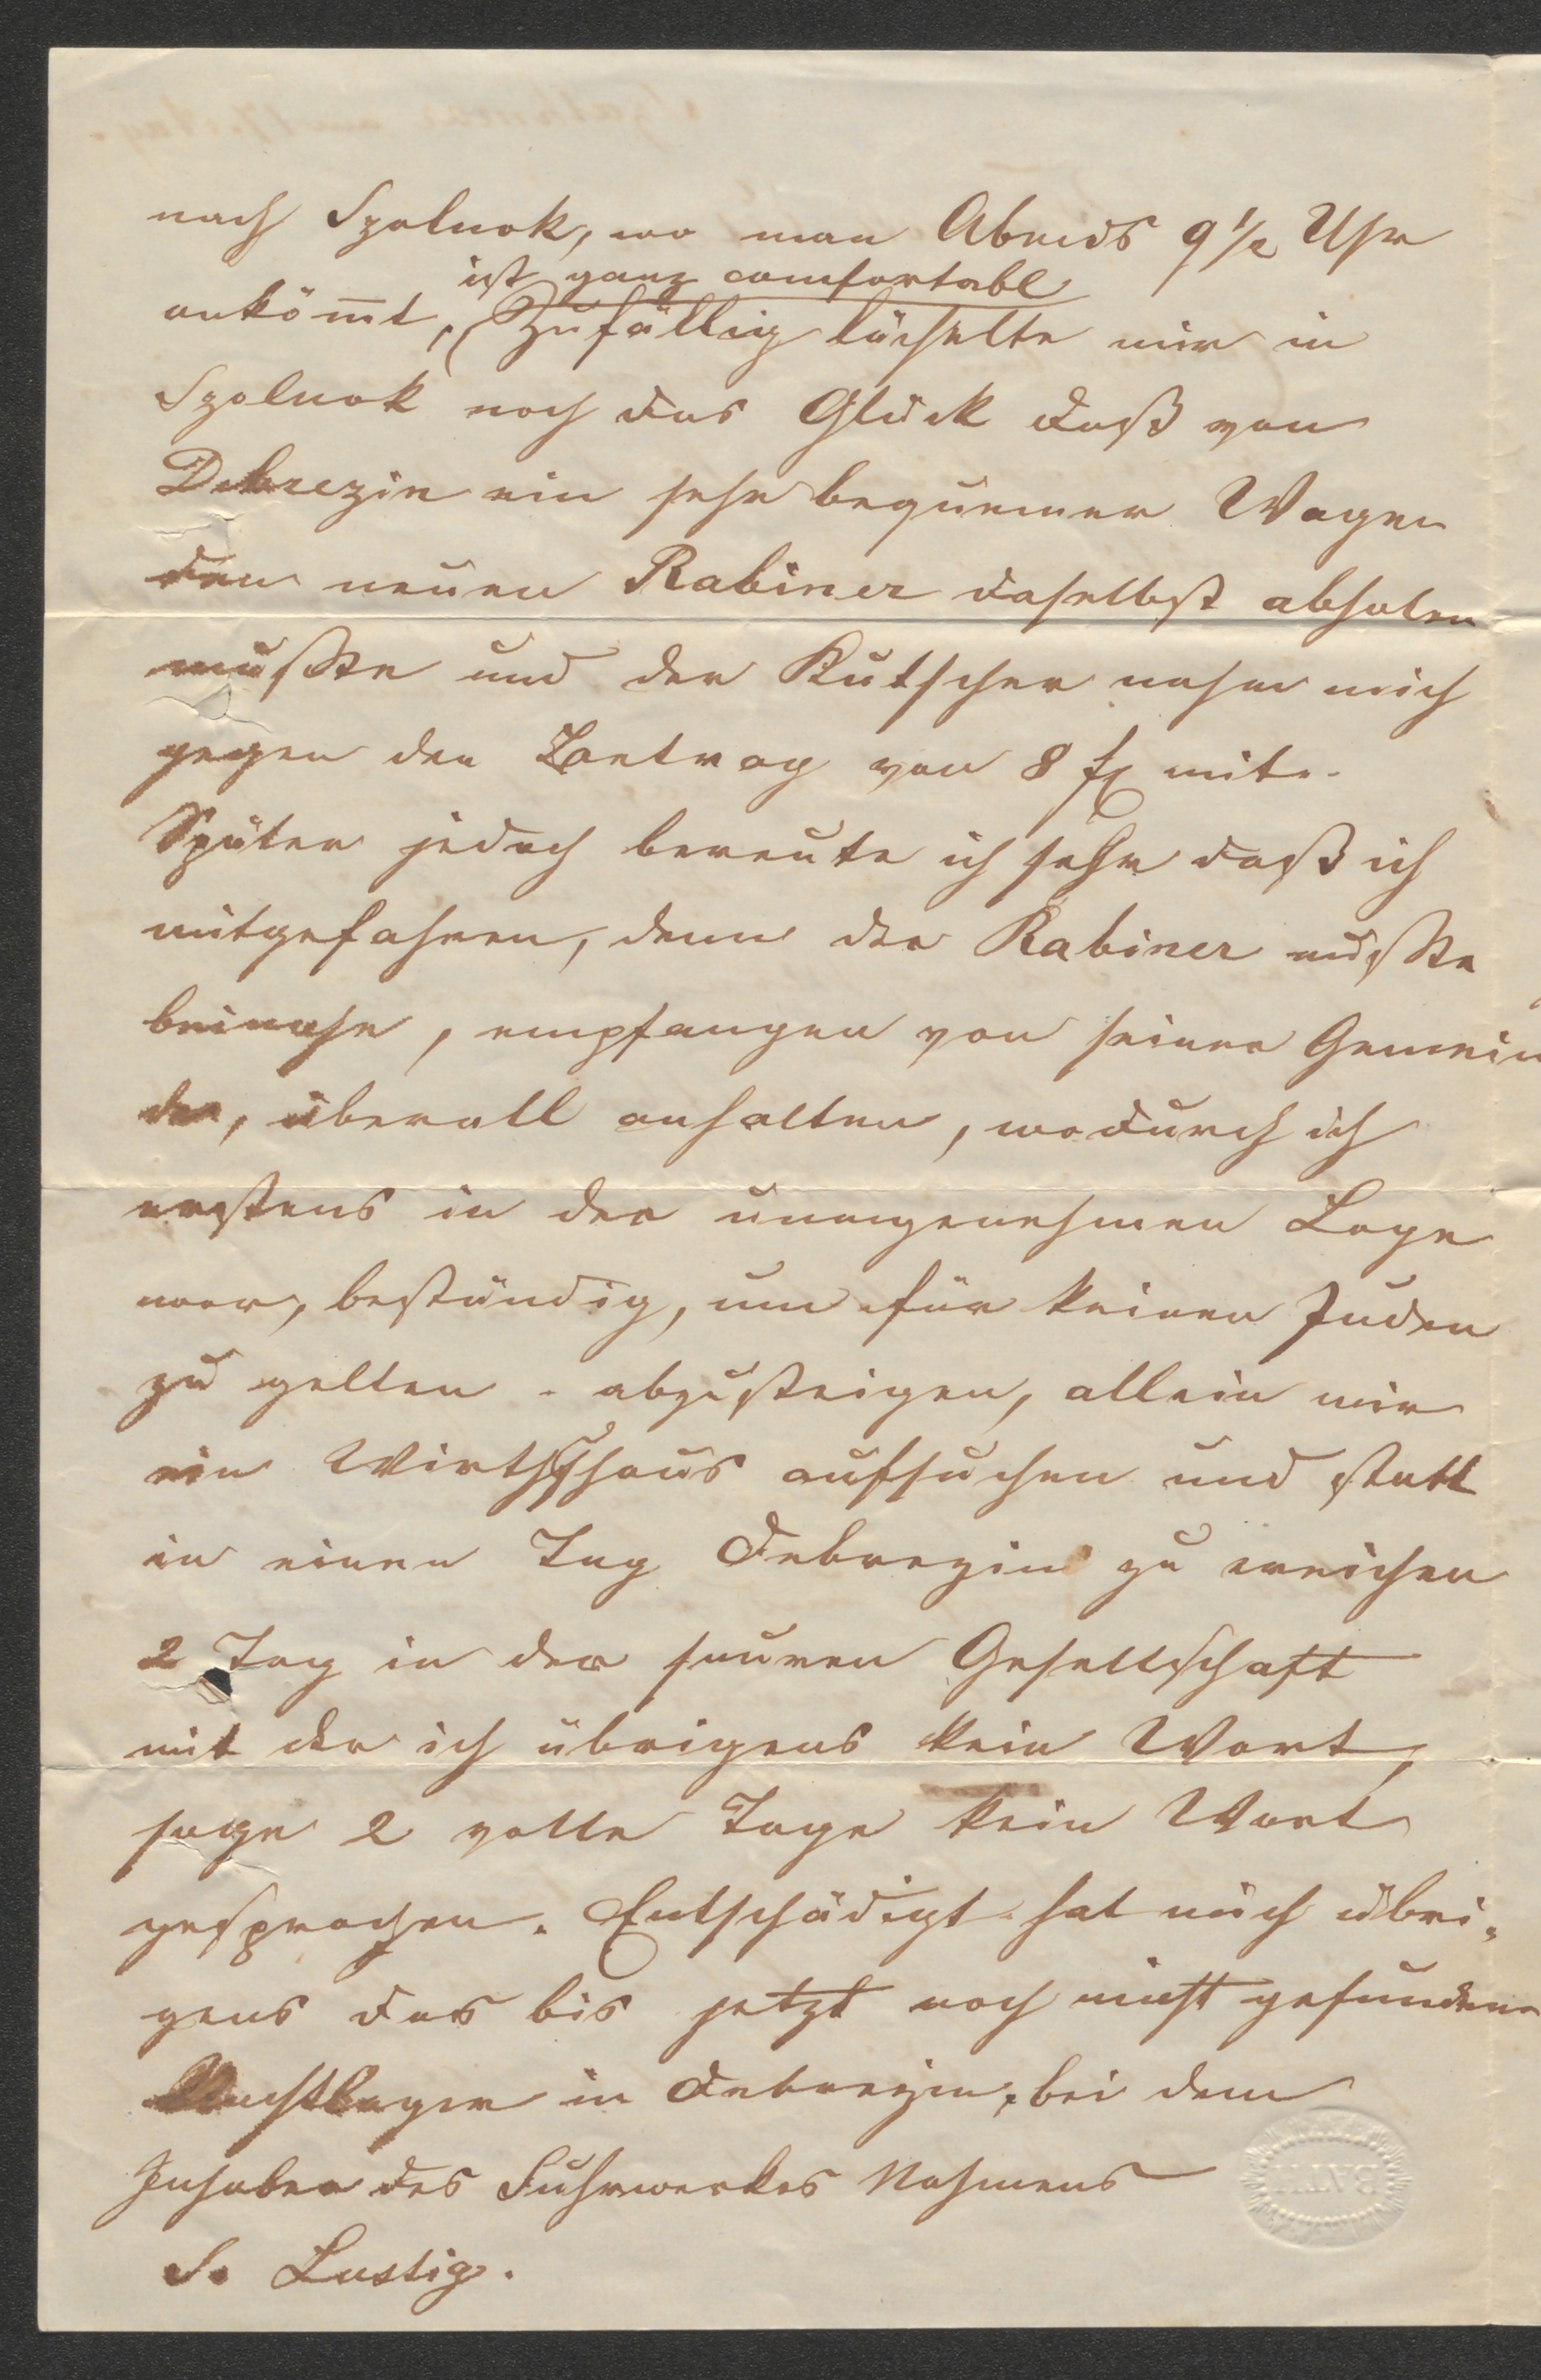 nach Szolnok, wo man Abends 9 1/2 Uhr
ist ganz comfortabl
ankömt, Zufällig lächelte mir in
Szolnok noch das Glück daß von
Debrezin ein sehr bequemer Wagen
den neuen Rabiner daselbst abholen
mußte und der Kutscher nahm mich
gegen den von 8 fl mit.
Später jedoch bereute ich sehr daß ich
mitgefahren, denn der Rabiner mußte
beinahe, empfangen von seiner Gemein
de, überall anhalten, wodurch ich
erstens in der unangenehmen Lage
war, beständig, um für keinen Juden
zu gelten - abzusteigen, allein mir
ein Wirthshaus aufsuchen und statt
in einen Tag Debrezin zu ereichen
2 Tag in der sauren Gesellschaft
mit der ich übrigens kein Wort,
sage 2 volle Tage kein Wort
gesprochen. Entschädigt hat mich übri-
gens das bis jetzt noch nicht gefundene
Nachtlager in Debrezin, bei dem
Inhaber des Fuhrwerkes Nahmens
S. Lustig.
BATH